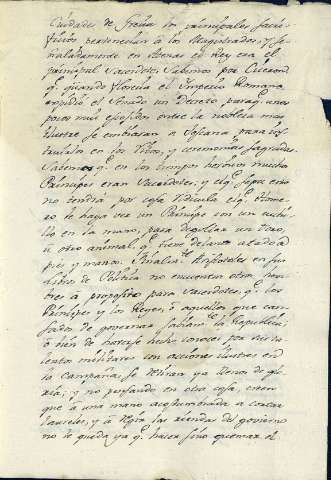 Ciudades de Grecia los principales Sacri-
ficios pertenecian à los Magistrados, y se-
ñaladamente en Atenas el Rey era el
principal Sacerdote. Sabemos por Ciceron
q. quando florecia el Imperio Romano
expidió el Senado un Decreto paraq. unos
pocos muy escojidos entre la nobleza mas
ilustre se embiaran a Toscana, para ins-
truirlos en los Ritos, y ceremonias sagradas.
Sabemos q. en los tiempos heroicos muchos
Principes eran Sacerdotes; y el q. sepa esto
no tendrá por cosa ridicula el q. Home-
ro te haga ver un Principe con un cuchi-
llo en la mano, para degollar un toro,
ù otro animal, q. tiene delante atado de
pies y manos. Finalm.te Aristoteles en su
libro de Politica no encuentra otros hom-
bres à proposito para Sacerdotes, q. los
Principes y los Reyes, ò aquellos que can-
sados de governar la Republica,
ò bien de haverse hecho conocer por sus ta-
lentos militares con acciones ilustres en
la Campaña, se retiran ya llenos de glo-
ria; y no pensando en otra cosa, creen
que à una mano acostumbrada a cortar
laureles, y à regir las riendas del govierno
no le queda ya q. hacer sino quemar el